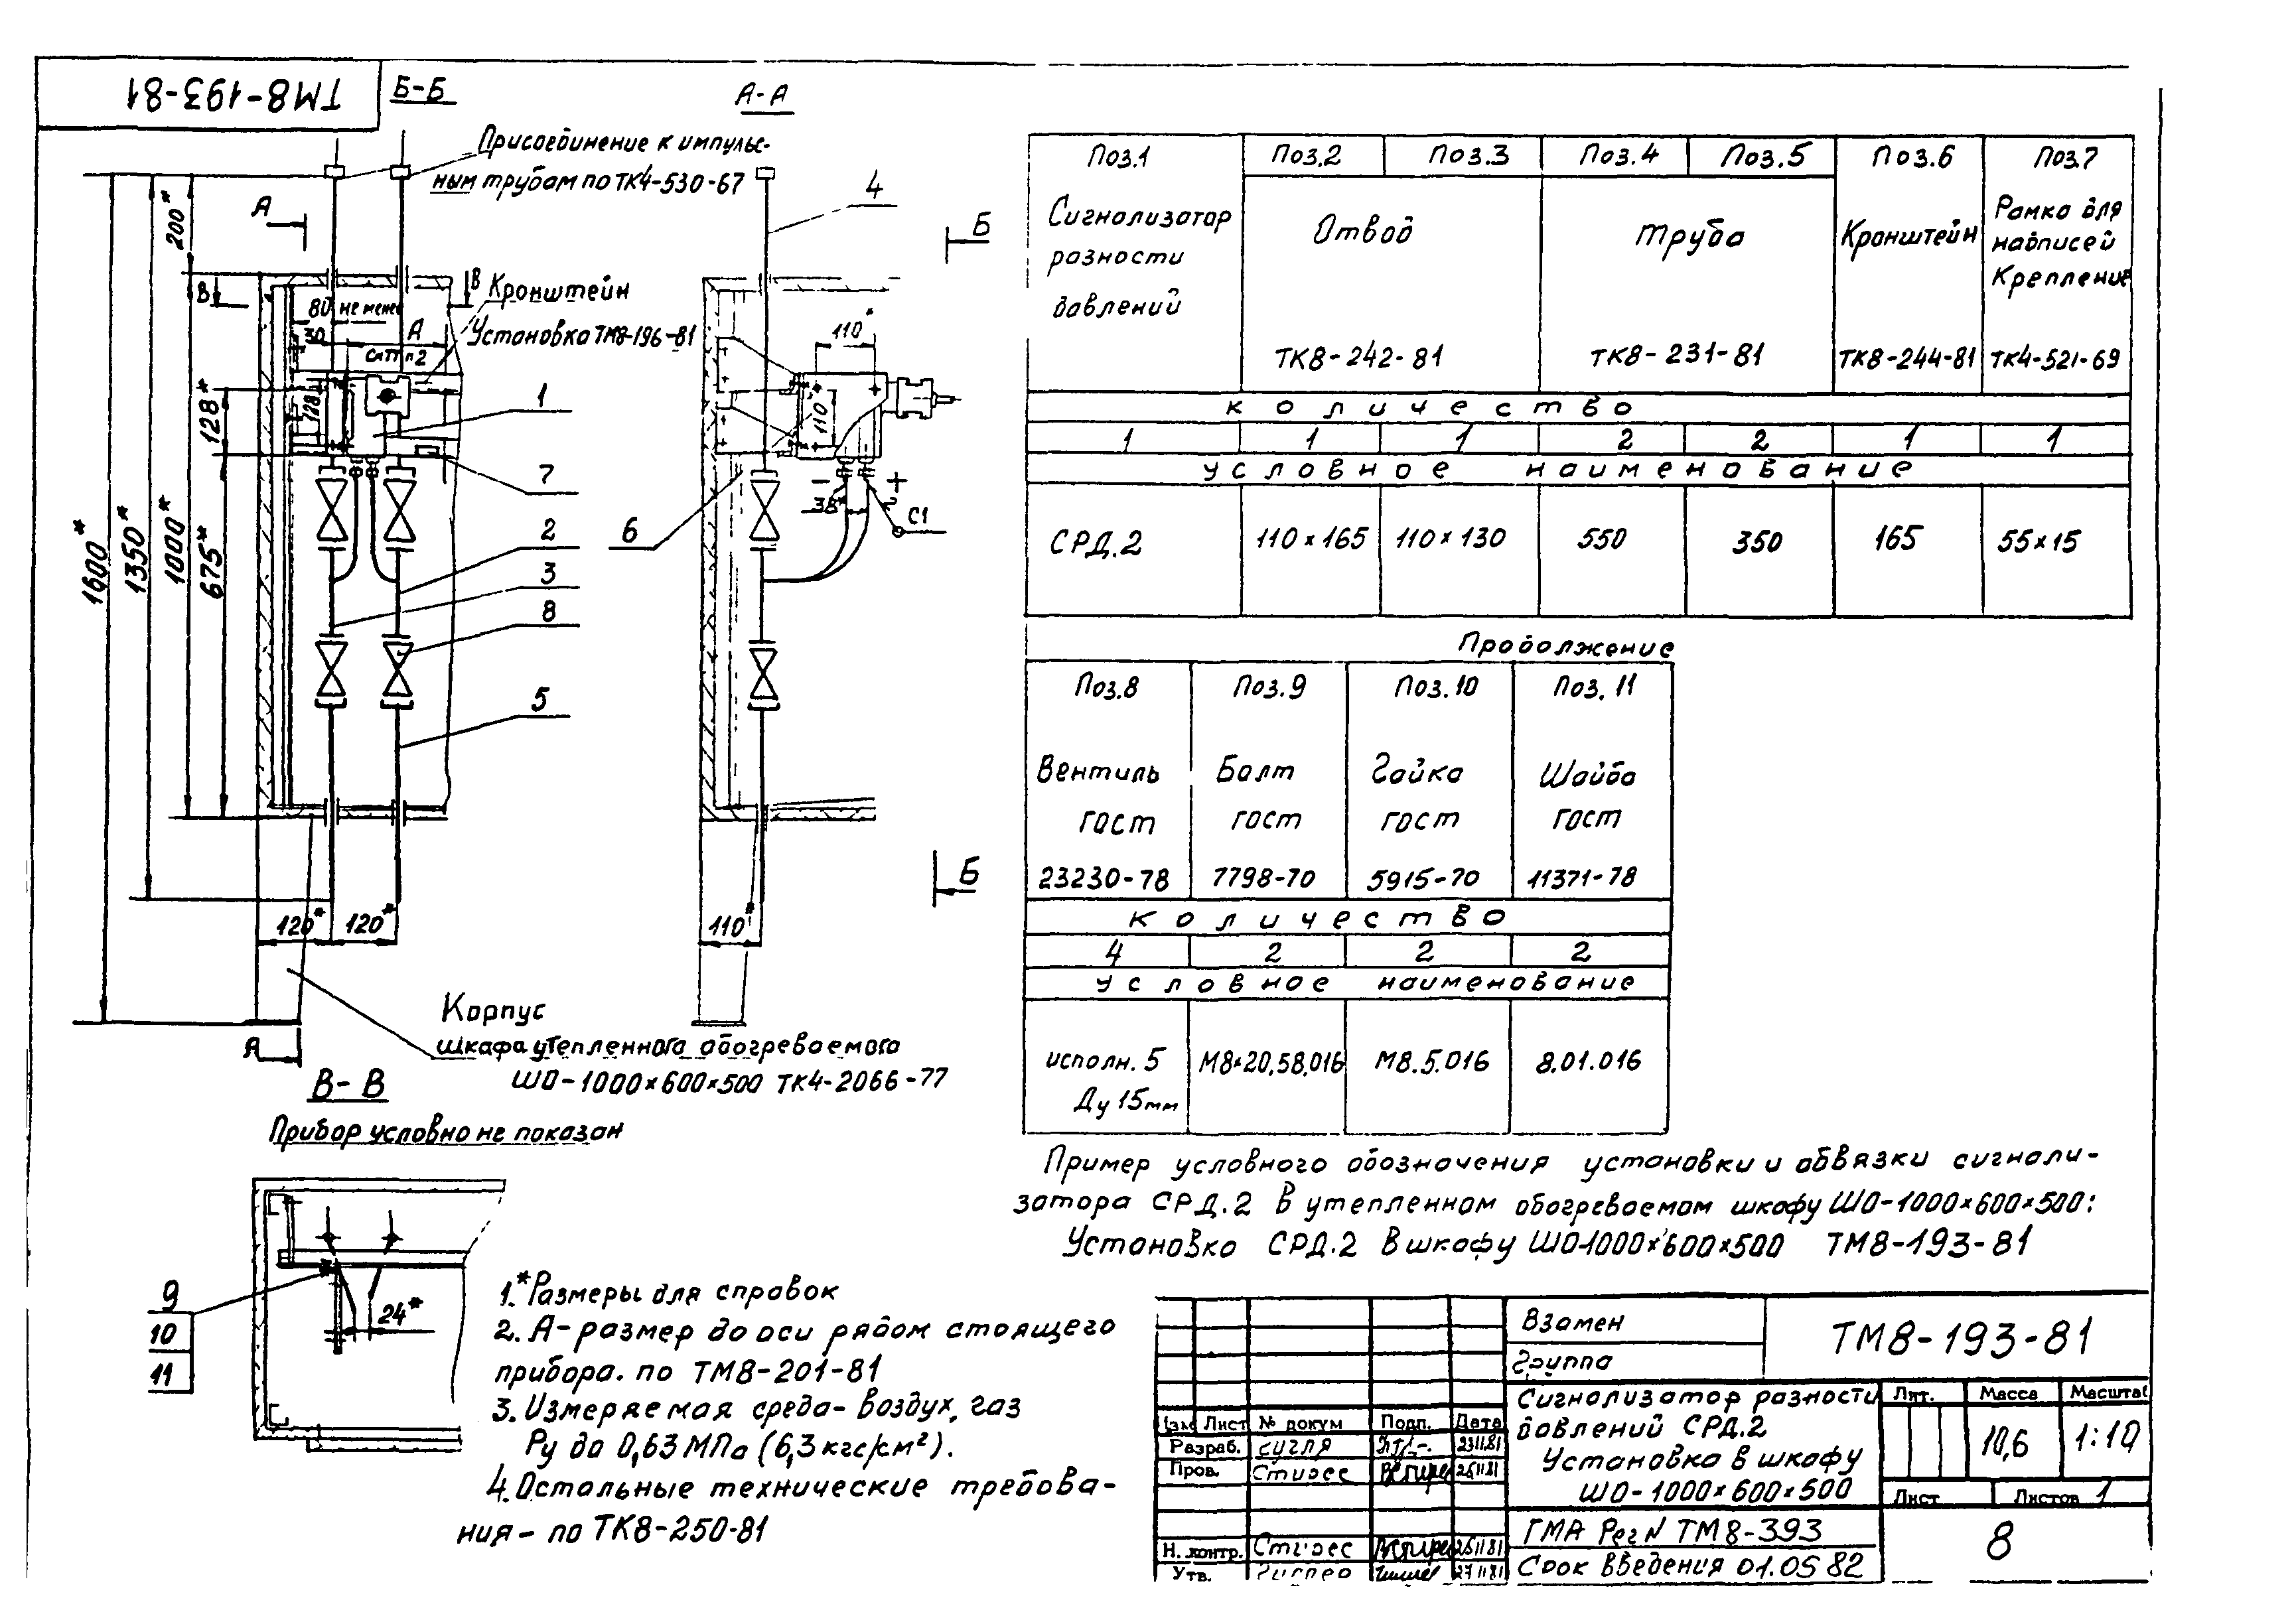 ТМ8-193-81
Б-Б
А-А
Присоединение к импульс-
ным трубам по ТК4-530-67
А
Б
4
200*
В
В
80 не менее
30
А
см. п 2
Кронштейн
Установка ТМ8-196-81
110*
128*
128
110
1
7
2
6
3
8
5
38*
С1
1600*
1350*
1000*
675*
Б
120*
120*
110*
А
Корпус
шкафа утепленного обогреваемого
ШО-1000×600×500 ТК4-2066-77
В-В
Прибор условно не показан
9
10
11
24*
1.*Размеры для справок
2. А-размер до оси рядом стоящего
прибора. по ТМ8-201-81
3. Измеряемая среда- воздух, газ
Ру до 0,63 МПа (6,3 кгс/см²).
4. Остальные технические требова-
ния - по ТК8-250-81
Поз.1 Поз.2 Поз.3 Поз.4 Поз.5 Поз.6 Поз.7
Сигнализатор разности давлений
Отвод
ТК8-242-81
Труба
ТК8-231-81
Кронштейн
ТК8-244-81
Рамка для надписей Крепление
ТК4-521-69
количество
1 1 1 2 2 1 1
условное наименование
СРД.2 110×165 110×130 550 350 165 55×15
Продолжение
Поз.8 Поз.9 Поз.10 Поз.11
Вентиль Болт Гайка Шайба
ГОСТ ГОСТ ГОСТ ГОСТ
23230-78 7798-70 5915-70 11371-78
количество
4 2 2 2
условное наименование
исполн. 5 М8×20.58.016 М8.5.016 8.01.016
Ду 15мм
Пример условного обозначения установки и обвязки сигнали-
затора СРД.2 в утепленном обогреваемом шкафу ШО-1000×600×500:
Установка СРД.2 в шкафу ШО-1000×600×500 ТМ8-193-81
Взамен
Группа
ТМ8-193-81
Сигнализатор разности
давлений СРД.2
Установка в шкафу
ШО-1000×600×500
Лит. Масса Масштаб
10,6 1:10
Лист Листов 1
Изм Лист № докум Подп. Дата
Разраб. Сигля 23.11.81
Пров. 25.11.81
Н. контр. 25.11.81
Утв. 27.11.81
ГМА Рег N ТМ8-393
Срок введения 01.05 82
8